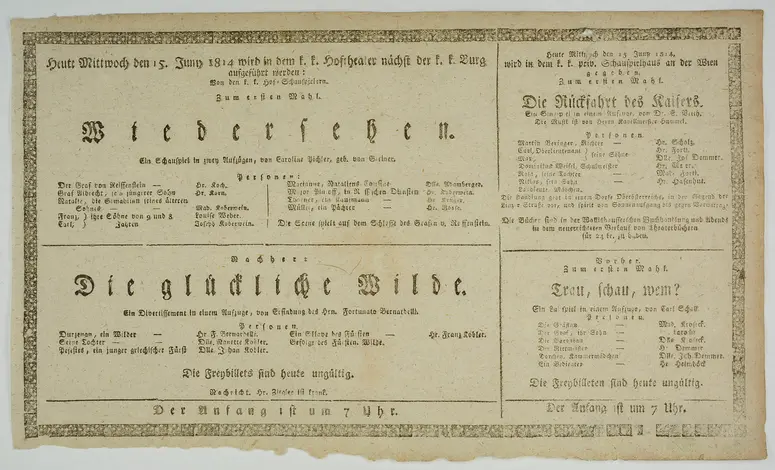 Heute Mittwoch den 15. Juny 1814 wird in dem k. k. Hoftheater nächst der k. k. Burg
aufgeführt werden:
Von den k. k. Hof-Schauspielern.
Zum ersten Mahl.
Wiedersehen.
Ein Schauspiel in zwey Aufzügen, von Caroline Pichler, geb. von Greiner.
Personen:
Der Graf von Reiffenstein — Hr. Koch.
Graf Albrecht, sein jüngerer Sohn Hr. Korn.
Natalie, die Gemahlinn seines älteren
Sohnes — — — Mad. Koberwein.
Franz, } ihre Söhne von 9 und 8 Louise Weber.
Carl, } Jahren Joseph Koberwein.
Marianne, Nataliens
Major in Diensten Hr. Koberwein.
ein Hr. Krüger.
Müller, ein Pächter — Hr.
Die Scene spielt auf dem Schlosse des Grafen v. Reiffenstein.
Nachher:
Die glückliche Wilde.
Ein Divertissement in einem Aufzuge, von Erfindung des Hrn. Fortunato Bernardelli.
Personen.
ein Wilder — Hr F. Bernardelli.
Seine Tochter — Dlle. Nanette Kobler.
ein junger griechischer Fürst Dlle Kobler.
Ein Sklave des Fürsten — Hr. Franz Kobler.
Gefolge des Fürsten. Wilde.
Die Freybillets sind heute ungültig.
Nachricht. Hr. Ziegler ist krank.
Der Anfang ist um 7 Uhr.
Heute Mittwoch den 15 Juny 1814.
wird in dem k. k. priv. Schauspielhaus an der Wien
gegeben.
Zum ersten Mahl.
Die Rückfahrt des Kaisers.
Ein Singspiel in einem Aufzuge, von Dr. E. Veith.
Die Musik ist von Herrn Kapellmeister Hummel.
Personen
Martin Richter — Hr. Scholz.
Carl, Oberlieutenant } seine Söhne Hr. Forti.
Dlle.
Weibl, Schulmeister — Hr.
seine Tochter — Mad. Forti.
Niklas, sein Sohn — Hr. Hasenhut.
Die Handlung geht in einem Dorfe
Die Bücher sind in der Buchhandlung und Abends
in dem Verkauf von Theaterbüchern
für 24 kr. zu haben.
Vorher.
Zum ersten Mahl.
Trau, schau, wem?
Ein Lustspiel in einem Aufzuge, von Carl Schall
Personen.
Die Gräfinn — Mad.
ihr Sohn —
Die Baroninn — Dlle
Der Rittmeister — H Demmer
Kammermädchen Dlle, Jos. Demmer.
Ein Bedienter — Hr
Die Freybilleten sind heute ungültig.
Der Anfang ist um 7 Uhr.